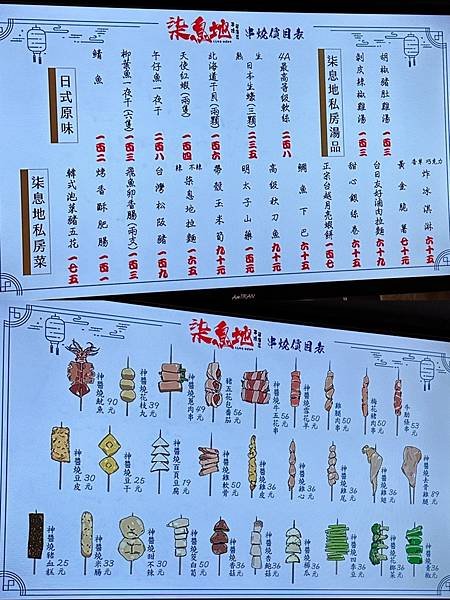 柒息地 串燒價目表
柒息地私房湯品
胡椒豬肚雞湯 一四三
剝皮辣椒雞湯 一四三
4A最高等級軟絲 二四八
熟 生
日本生蠔(三顆) 二三五
北海道干貝(兩顆) 一四六
天使紅蝦(兩隻) 一四四
午仔魚一夜干 二四八
柳葉魚一夜干(六隻) 一四二
鯖魚 一四二
日式原味
香草 巧克力
炸冰淇淋 六十五
黃金脆薯 七十元
台日友好滷肉拉麵 六十五
甜心銀絲卷 六十五
正宗台越月亮蝦餅 一四七
鯛魚下巴 六十五
高級秋刀魚 九十元
明太子山藥 九十元
帶殼玉米筍 九十元
辣 不辣
柒息地拉麵 一六五
台灣松阪豬 一六五
飛魚卵香腸(兩支) 一三二
烤香酥肥腸 一四二
韓式泡菜豬五花 一七五
柒息地私房菜
柒息地 串燒價目表
神醬燒魷魚 90元
神醬燒花枝丸 39元
神醬燒蔥肉串 49元
豬五花包番茄 56元
神醬燒牛五花串 56元
神醬燒雪花羊 50元
雞腿肉串 50元
梅花豬肉串 50元
牛肋條串 53元
神醬燒豆皮 30元
神醬燒豆干 25元
神醬燒百頁豆腐 79元
神醬燒雞軟骨 50元
神醬燒雞皮 36元
神醬燒雞心 36元
神醬燒雞尾 36元
神醬燒雞翅 36元
神醬燒去骨雞腿 89元
神醬燒豬血糕 25元
神醬燒米腸 33元
神醬燒甜不辣 30元
神醬燒筊白筍 50元
神醬燒香菇 36元
神醬燒杏鮑菇 36元
神醬燒櫛瓜 36元
神醬燒四季豆 36元
神醬燒花椰菜 36元
神醬燒青椒 36元